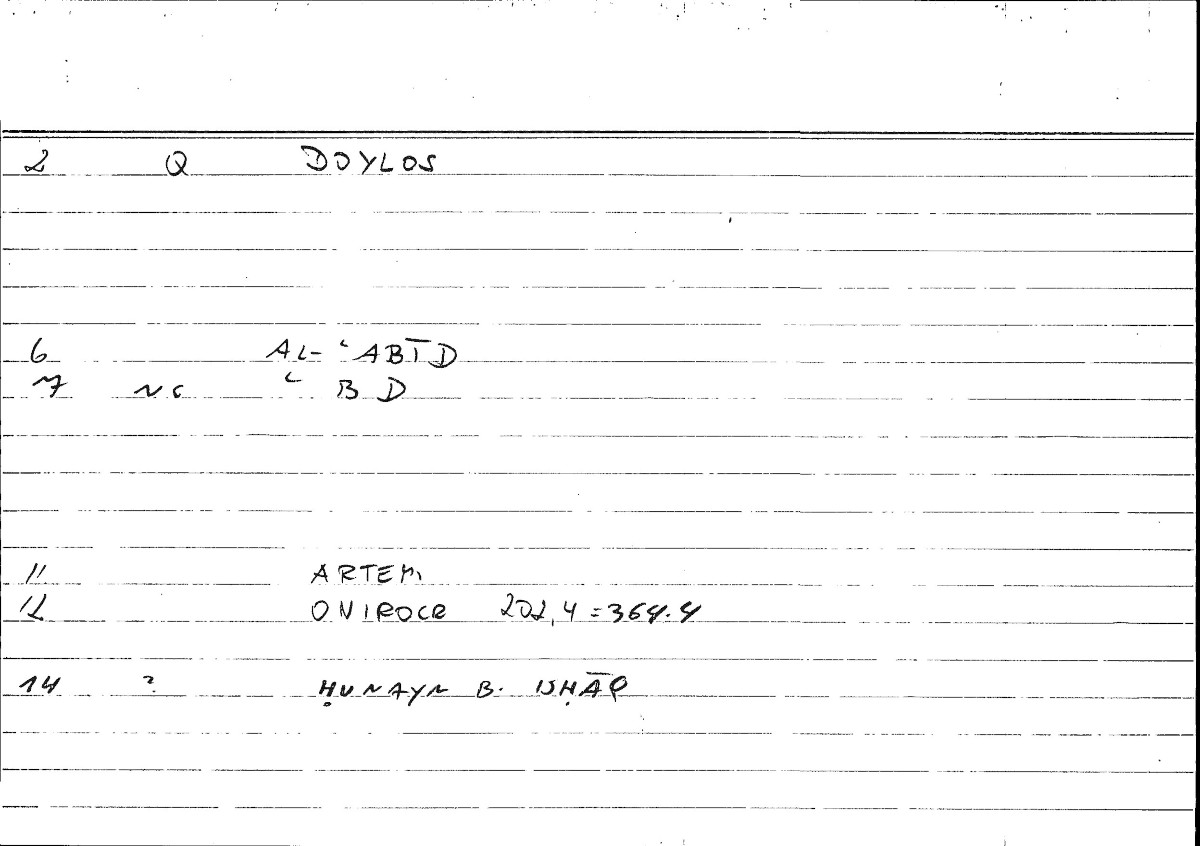 2 Q DOYLOS
6 AL-ʿABĪD
7 NC ʿ B D
11 ARTEM.
12 ONIROCR 202,4=364.4
14 ? ḤUNAYN B. ISḤĀQ